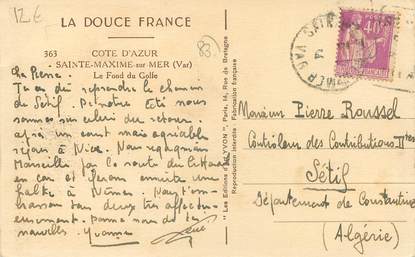 12€
LA DOUCE FRANCE
363 COTE D'AZUR
SAINTE-MAXIME-sur-MER (Var)
Le Fond du Golfe
(83)
Tu as dû reprendre le chemin
de Sétif. Peut-être
sommes sur celui du retour,
après un court mais agréable
séjour à Nice. Nous regagnons
Marseille par la route du
en car et ferons ensuite une
halte à Nîmes. Nous t'em-
brassons tous deux très affectu-
eusement. Donne nous de tes
nouvelles. Yvonne
"Les Éditions d'Art YVON", Paris, 14, Rue de Bretagne
Fabrication Française
Reproduction Interdite
VAR
40c
POSTES
Monsieur Pierre Roussel
Contrôleur des Contributions
Sétif
Département de Constantine
(Algérie)